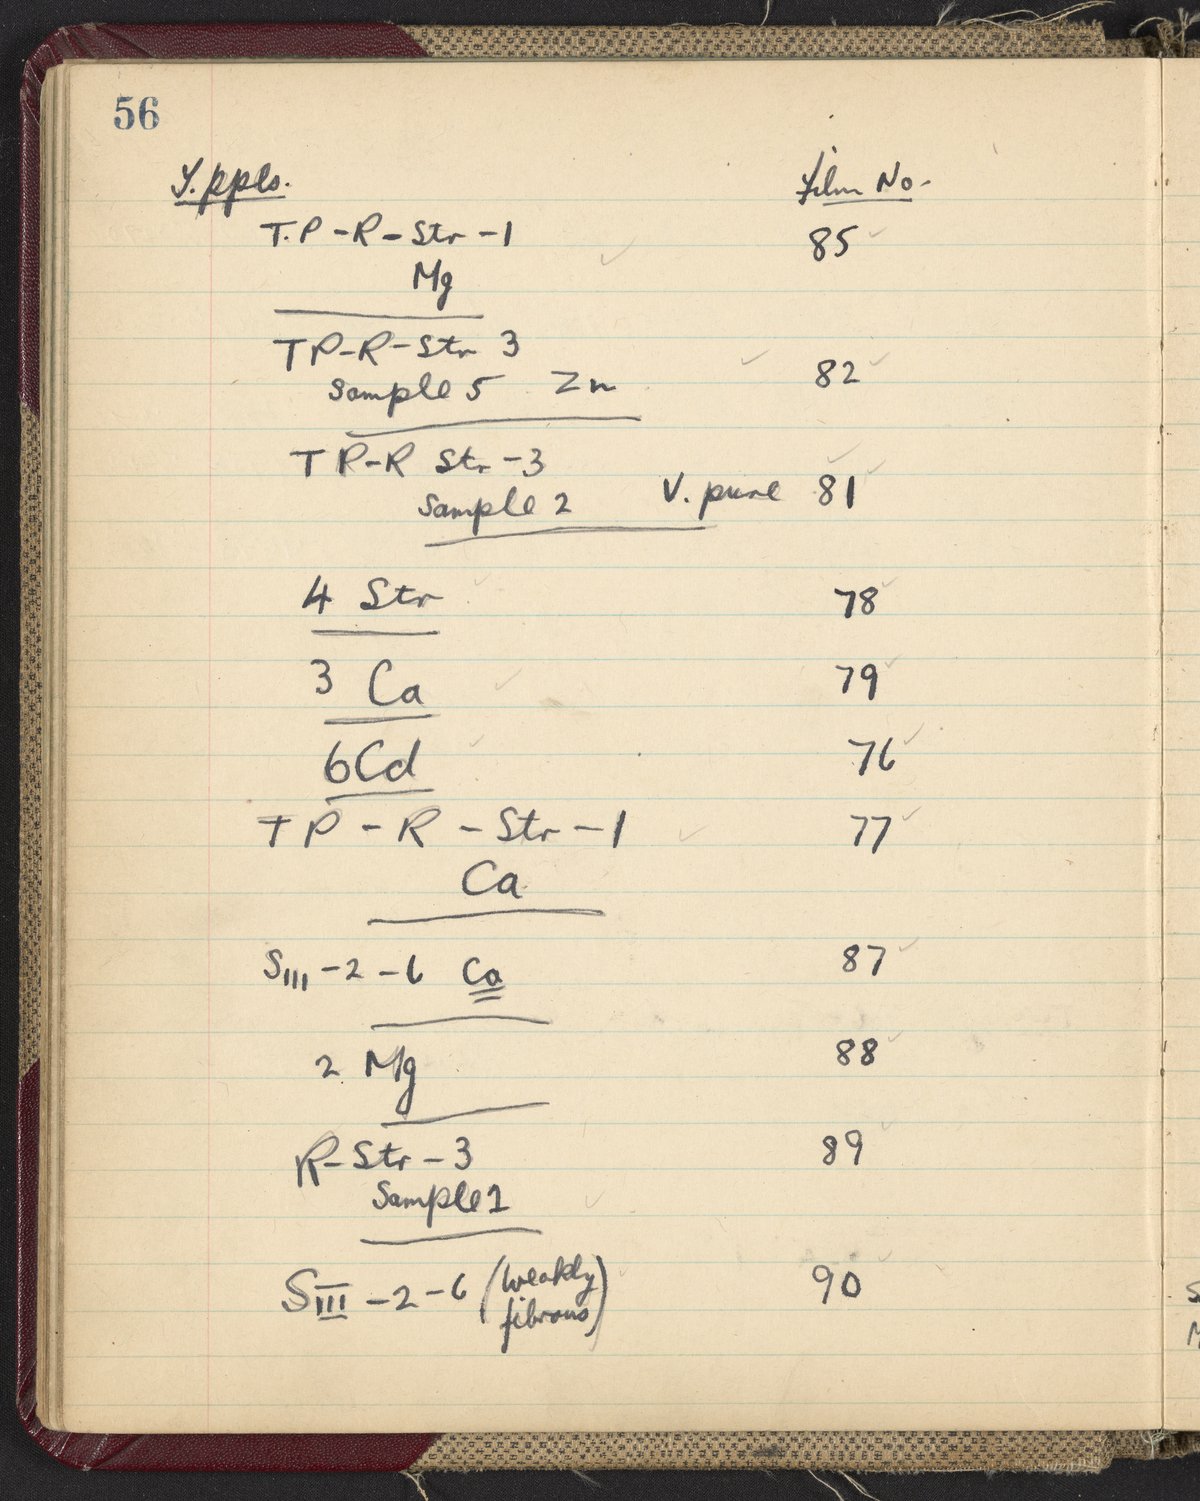 56
Y. ppls. Film No.
T.P-R-Str-1 85
Mg
TP-R-Str 3
Sample 5 Zn 82
TR-R Str-3
Sample 2 V. pure 81
4 Str 78
3 Ca 79
6Cd 76
TP-R-Str-1 77
Ca
SIII-2-6 Ca 87
2 Mg 88
R-Str-3 89
Sample 1
SIII-2-6 (weakly 90
fibrous)